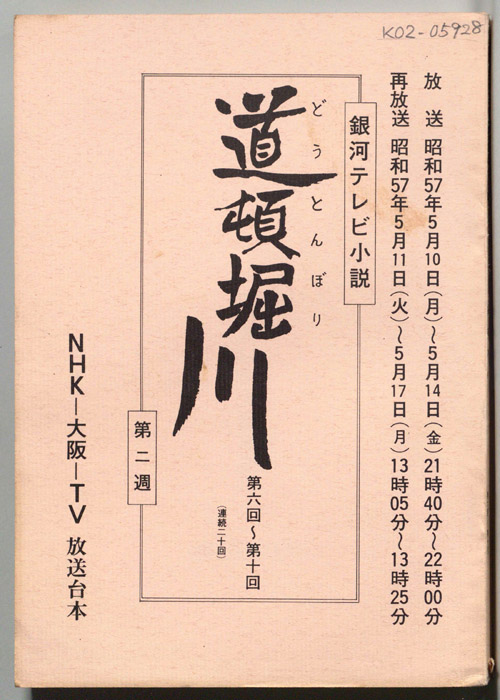 K02-05928
放送 昭和57年5月10日(月)~5月14日(金)21時40分~22時00分
再放送 昭和57年5月11日(火)~5月17日(月)13時05分~13時25分
銀河テレビ小説
どうとんぼり
道頓堀川
第六回~第十回
(連続二十回)
第二週
NHK-大阪-TV 放送台本